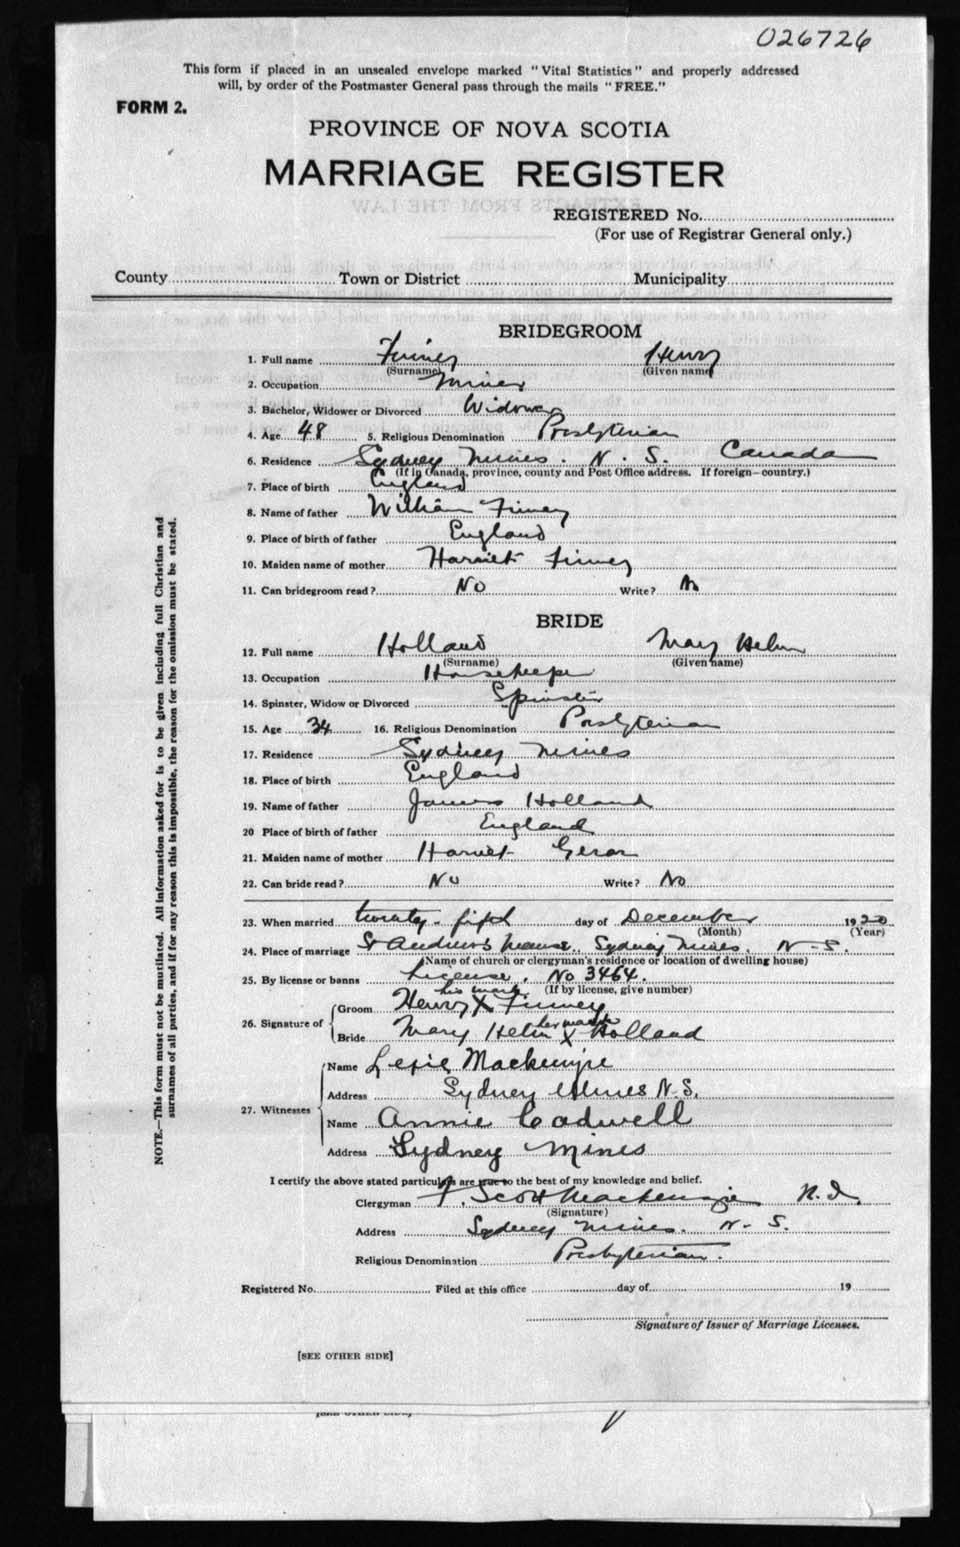 026726
This form if placed in an unsealed envelope marked "Vital Statistics" and properly addressed
will, by order of the Postmaster General pass through the mails "FREE."
FORM 2.
PROVINCE OF NOVA SCOTIA
MARRIAGE REGISTER
REGISTERED No.
(For use of Registrar General only.)
County Town or District Municipality
BRIDEGROOM
1. Full name Finney Henry
(Surname) (Given name)
2. Occupation Miner
3. Bachelor, Widower or Divorced Widower
4. Age 48 5. Religious Denomination Presbyterian
6. Residence Sydney Mines. N. S. Canada
(If in Canada, province, county and Post Office address. If foreign—country.)
7. Place of birth England
8. Name of father William Finney
9. Place of birth of father England
10. Maiden name of mother Harriet Finney
11. Can bridegroom read? No Write? No
BRIDE
12. Full name Holland Mary Helen
(Surname) (Given name)
13. Occupation Housekeeper
14. Spinster, Widow or Divorced Spinster
15. Age 34 16. Religious Denomination Presbyterian
17. Residence Sydney Mines
18. Place of birth England
19. Name of father James Holland
20 Place of birth of father England
21. Maiden name of mother Harriet
22. Can bride read? No Write? No
23. When married twenty-fifth day of December 1920
(Month) (Year)
24. Place of marriage St Andrew's Manse, Sydney Mines. N-S.
(Name of church or clergyman's residence or location of dwelling house)
25. By license or banns License. No 3464.
(If by license, give number)
his mark
26. Signature of Groom Henry X Finney
her mark
Bride Mary Helen X Holland
27. Witnesses Name Lexie Mackenzie
Address Sydney Mines N.S.
Name Annie Cadwell
Address Sydney Mines
I certify the above stated particulars are true to the best of my knowledge and belief.
Clergyman F. Scott Mackenzie
(Signature)
Address Sydney Mines. N-S.
Religious Denomination Presbyterian.
Registered No. Filed at this office day of 19
Signature of Issuer of Marriage Licenses.
[SEE OTHER SIDE]
NOTE.—This form must not be mutilated. All information asked for is to be given including full Christian and
surnames of all parties, and if for any reason this is impossible, the reason for the omission must be stated.